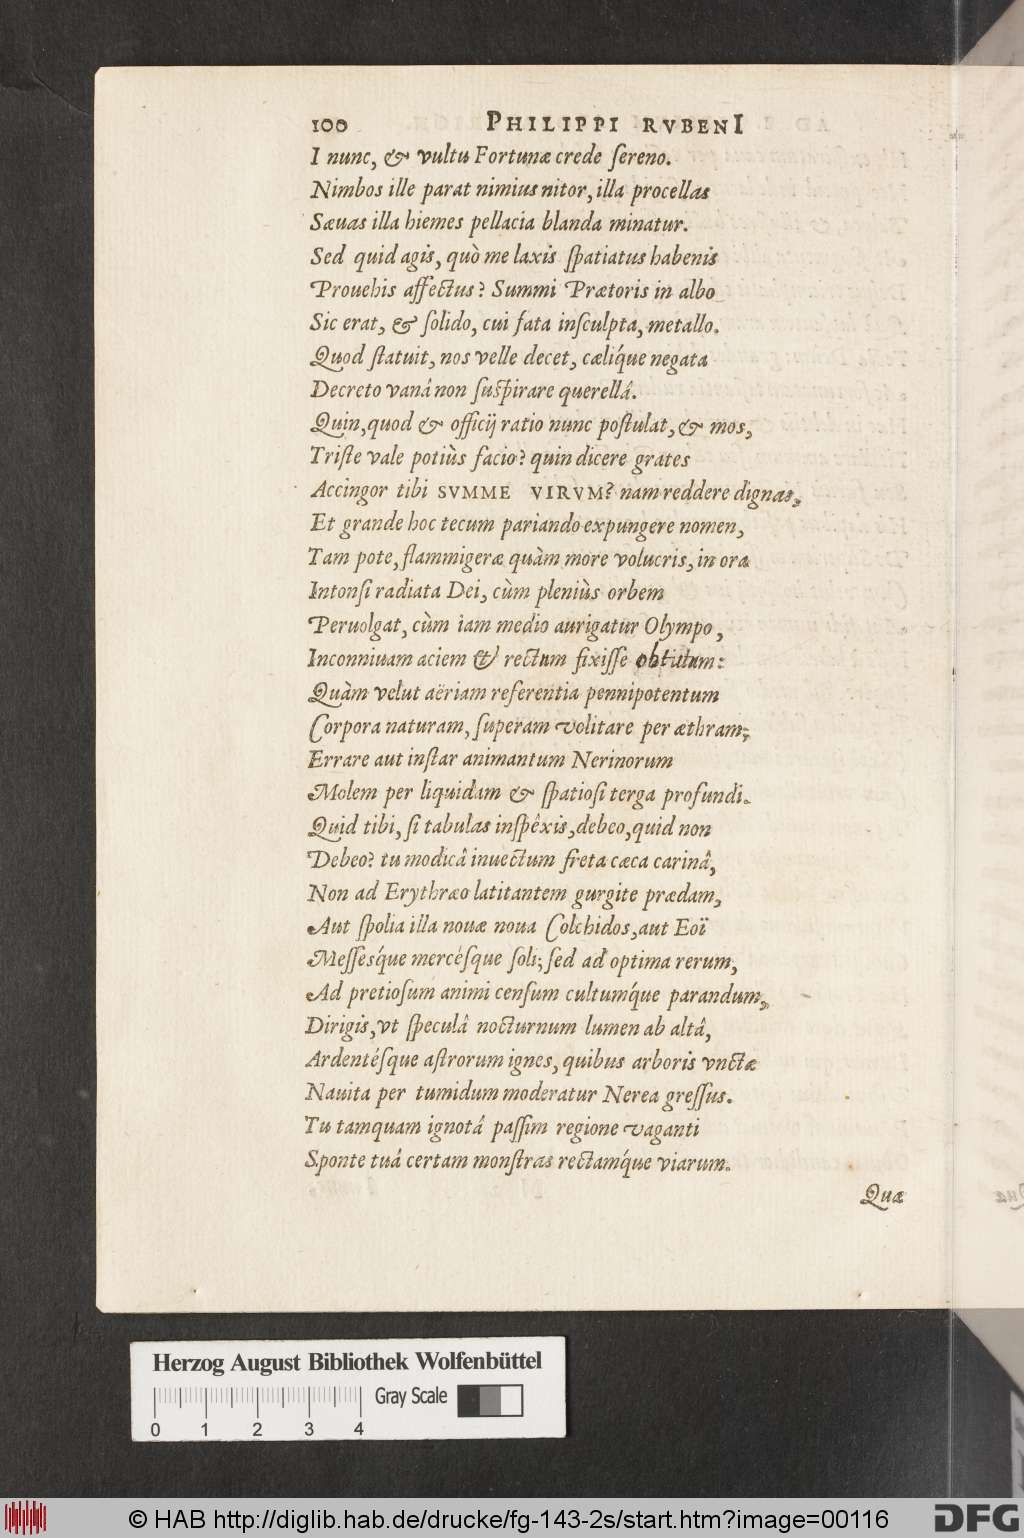 100 PHILIPPI RVBENI
I nunc, & vultu Fortunæ crede ſereno.
Nimbos ille parat nimius nitor, illa procellas
Sæuas illa hiemes pellacia blanda minatur.
Sed quid agis, quò me laxis ſpatiatus habenis
Prouehis affectus? Summi Prætoris in albo
Sic erat, & ſolido, cui fata inſculpta, metallo.
Quod ſtatuit, nos velle decet, cælíque negata
Decreto vanâ non ſuſpirare querellâ.
Quin, quod & officij ratio nunc poſtulat, & mos,
Triſte vale potiùs facio? quin dicere grates
Accingor tibi SVMME VIRVM? nam reddere dignas,
Et grande hoc tecum pariando expungere nomen,
Tam pote, flammigeræ quàm more volucris, in ora
Intonſi radiata Dei, cùm pleniùs orbem
Peruolgat, cùm iam medio aurigatur Olympo,
Inconniuam aciem & rectum fixiſſe obtutum:
Quàm velut aëriam referentia pennipotentum
Corpora naturam, ſuperam volitare per æthram;
Errare aut inſtar animantum Nerinorum
Molem per liquidam & ſpatioſi terga profundi.
Quid tibi, ſi tabulas inſpêxis, debeo, quid non
Debeo? tu modicâ inuectum freta cæca carinâ,
Non ad Erythræo latitantem gurgite prædam,
Aut ſpolia illa nouæ noua Colchidos, aut Eoï
Meſſeſque mercéſque ſoli; ſed ad optima rerum,
Ad pretioſum animi cenſum cultumque parandum,
Dirigis, vt ſpeculâ nocturnum lumen ab altâ,
Ardentéſque aſtrorum ignes, quibus arboris vnctæ
Nauita per tumidum moderatur Nerea greſſus.
Tu tamquam ignotâ paſſim regione vaganti
Sponte tuâ certam monſtras rectámque viarum.
Quæ
Herzog August Bibliothek Wolfenbüttel
Gray Scale
0 1 2 3 4
© HAB http://diglib.hab.de/drucke/fg-143-2s/start.htm?image=00116
DFG